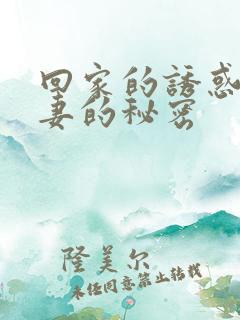 回家的誘惑
妻的秘密
隆美尔
未经同意禁止转载